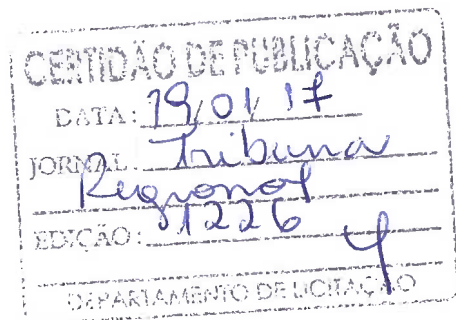 CERTIDÃO DE PUBLICAÇÃO
DATA: 19/01/17
JORNAL: Tribuna
Regional
EDIÇÃO: 1226
DEPARTAMENTO DE LICITAÇÃO